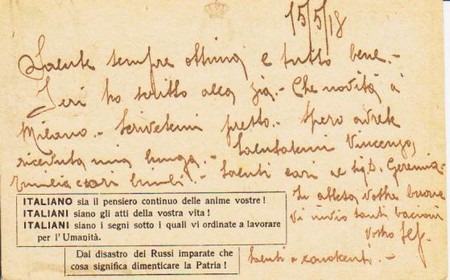 15/5/18
Salute sempre ottima e tutto bene.-
Ieri ho scritto alla zia.- Che novità a
Milano.- Scrivetemi presto.- Spero avrete
ricevuta mia lunga.- Salutatemi Vincenzo,
Emilia e cari bimbi.- Saluti cari ai Sig. Geremia
In attesa vostre buone
Vi invio tanti bacioni
Vostro
Saluti a conoscenti.-
ITALIANO sia il pensiero continuo delle anime vostre !
ITALIANI siano gli atti della vostra vita !
ITALIANI siano i segni sotto i quali vi ordinate a lavorare
per l'Umanità.
Dal disastro dei Russi imparate che
cosa significa dimenticare la Patria !